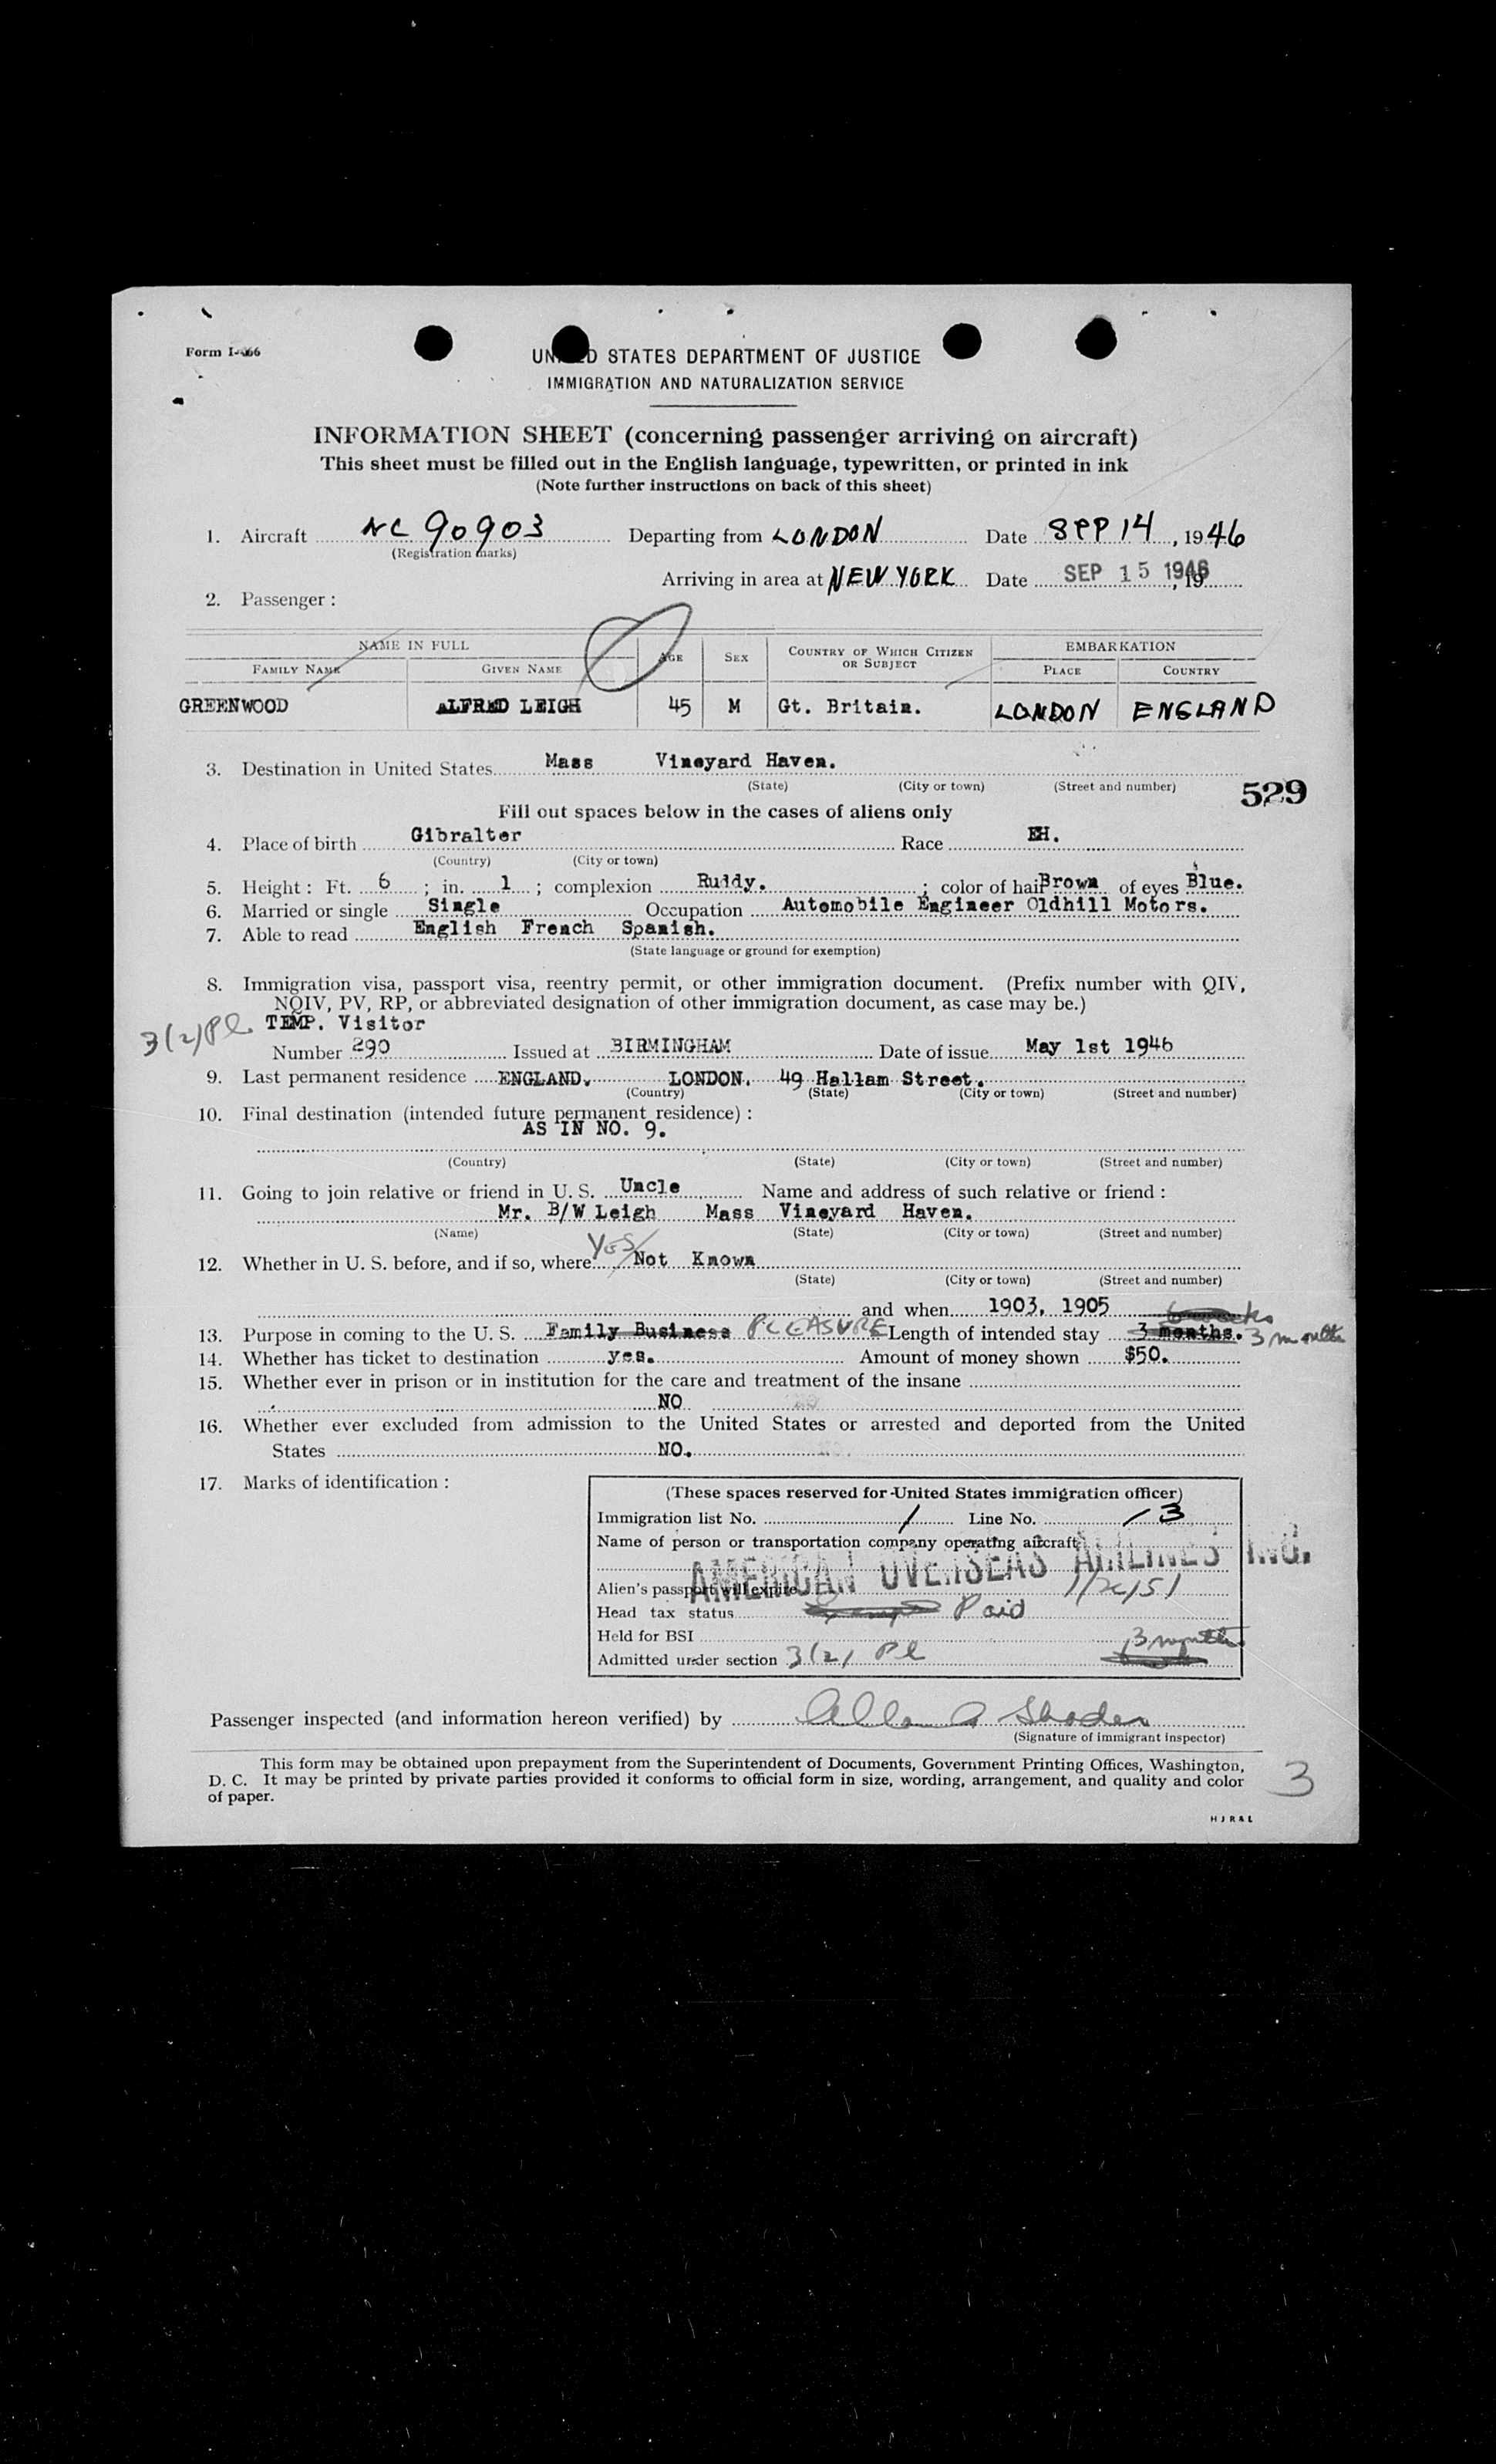 Form I-466
UNITED STATES DEPARTMENT OF JUSTICE
IMMIGRATION AND NATURALIZATION SERVICE
INFORMATION SHEET (concerning passenger arriving on aircraft)
This sheet must be filled out in the English language, typewritten, or printed in ink
(Note further instructions on back of this sheet)
1. Aircraft NC 90903 Departing from LONDON Date SEP 14, 1946
(Registration marks)
Arriving in area at NEW YORK Date SEP 15 1946, 19
2. Passenger:
NAME IN FULL AGE SEX COUNTRY OF WHICH CITIZEN OR SUBJECT EMBARKATION
FAMILY NAME GIVEN NAME PLACE COUNTRY
GREENWOOD ALFRED LEIGH 45 M Gt. Britain. LONDON ENGLAND
3. Destination in United States Mass Vineyard Haven.
(State) (City or town) (Street and number)
529
Fill out spaces below in the cases of aliens only
4. Place of birth Gibralter Race EH.
(Country) (City or town)
5. Height: Ft. 6; in. 1; complexion Ruddy.; color of hair Brown of eyes Blue.
6. Married or single Single Occupation Automobile Engineer Oldhill Motors.
7. Able to read English French Spanish.
(State language or ground for exemption)
8. Immigration visa, passport visa, reentry permit, or other immigration document. (Prefix number with QIV,
NQIV, PV, RP, or abbreviated designation of other immigration document, as case may be.)
3(2) Pl. TEMP. Visitor
Number 290 Issued at BIRMINGHAM Date of issue May 1st 1946
9. Last permanent residence ENGLAND. LONDON. 49 Hallam Street.
(Country) (State) (City or town) (Street and number)
10. Final destination (intended future permanent residence):
AS IN NO. 9.
(Country) (State) (City or town) (Street and number)
11. Going to join relative or friend in U. S. Uncle Name and address of such relative or friend:
Mr. B/W Leigh Mass Vineyard Haven.
(Name) (State) (City or town) (Street and number)
12. Whether in U. S. before, and if so, where YES/ Not Known
(State) (City or town) (Street and number)
and when 1903, 1905
13. Purpose in coming to the U. S. Family Business PLEASURE Length of intended stay 3 months. 3 months
14. Whether has ticket to destination yes. Amount of money shown $50.
15. Whether ever in prison or in institution for the care and treatment of the insane
NO
16. Whether ever excluded from admission to the United States or arrested and deported from the United
States NO.
17. Marks of identification:
(These spaces reserved for United States immigration officer)
Immigration list No. 1 Line No. 3
Name of person or transportation company operating aircraft
AMERICAN OVERSEAS AIRLINES INC.
Alien's passport will expire 1/26/51
Head tax status Paid
Held for BSI 3 months
Admitted under section 3(2) Pl
Passenger inspected (and information hereon verified) by
(Signature of immigrant inspector)
This form may be obtained upon prepayment from the Superintendent of Documents, Government Printing Offices, Washington,
D. C. It may be printed by private parties provided it conforms to official form in size, wording, arrangement, and quality and color
of paper.
3
HJR&L